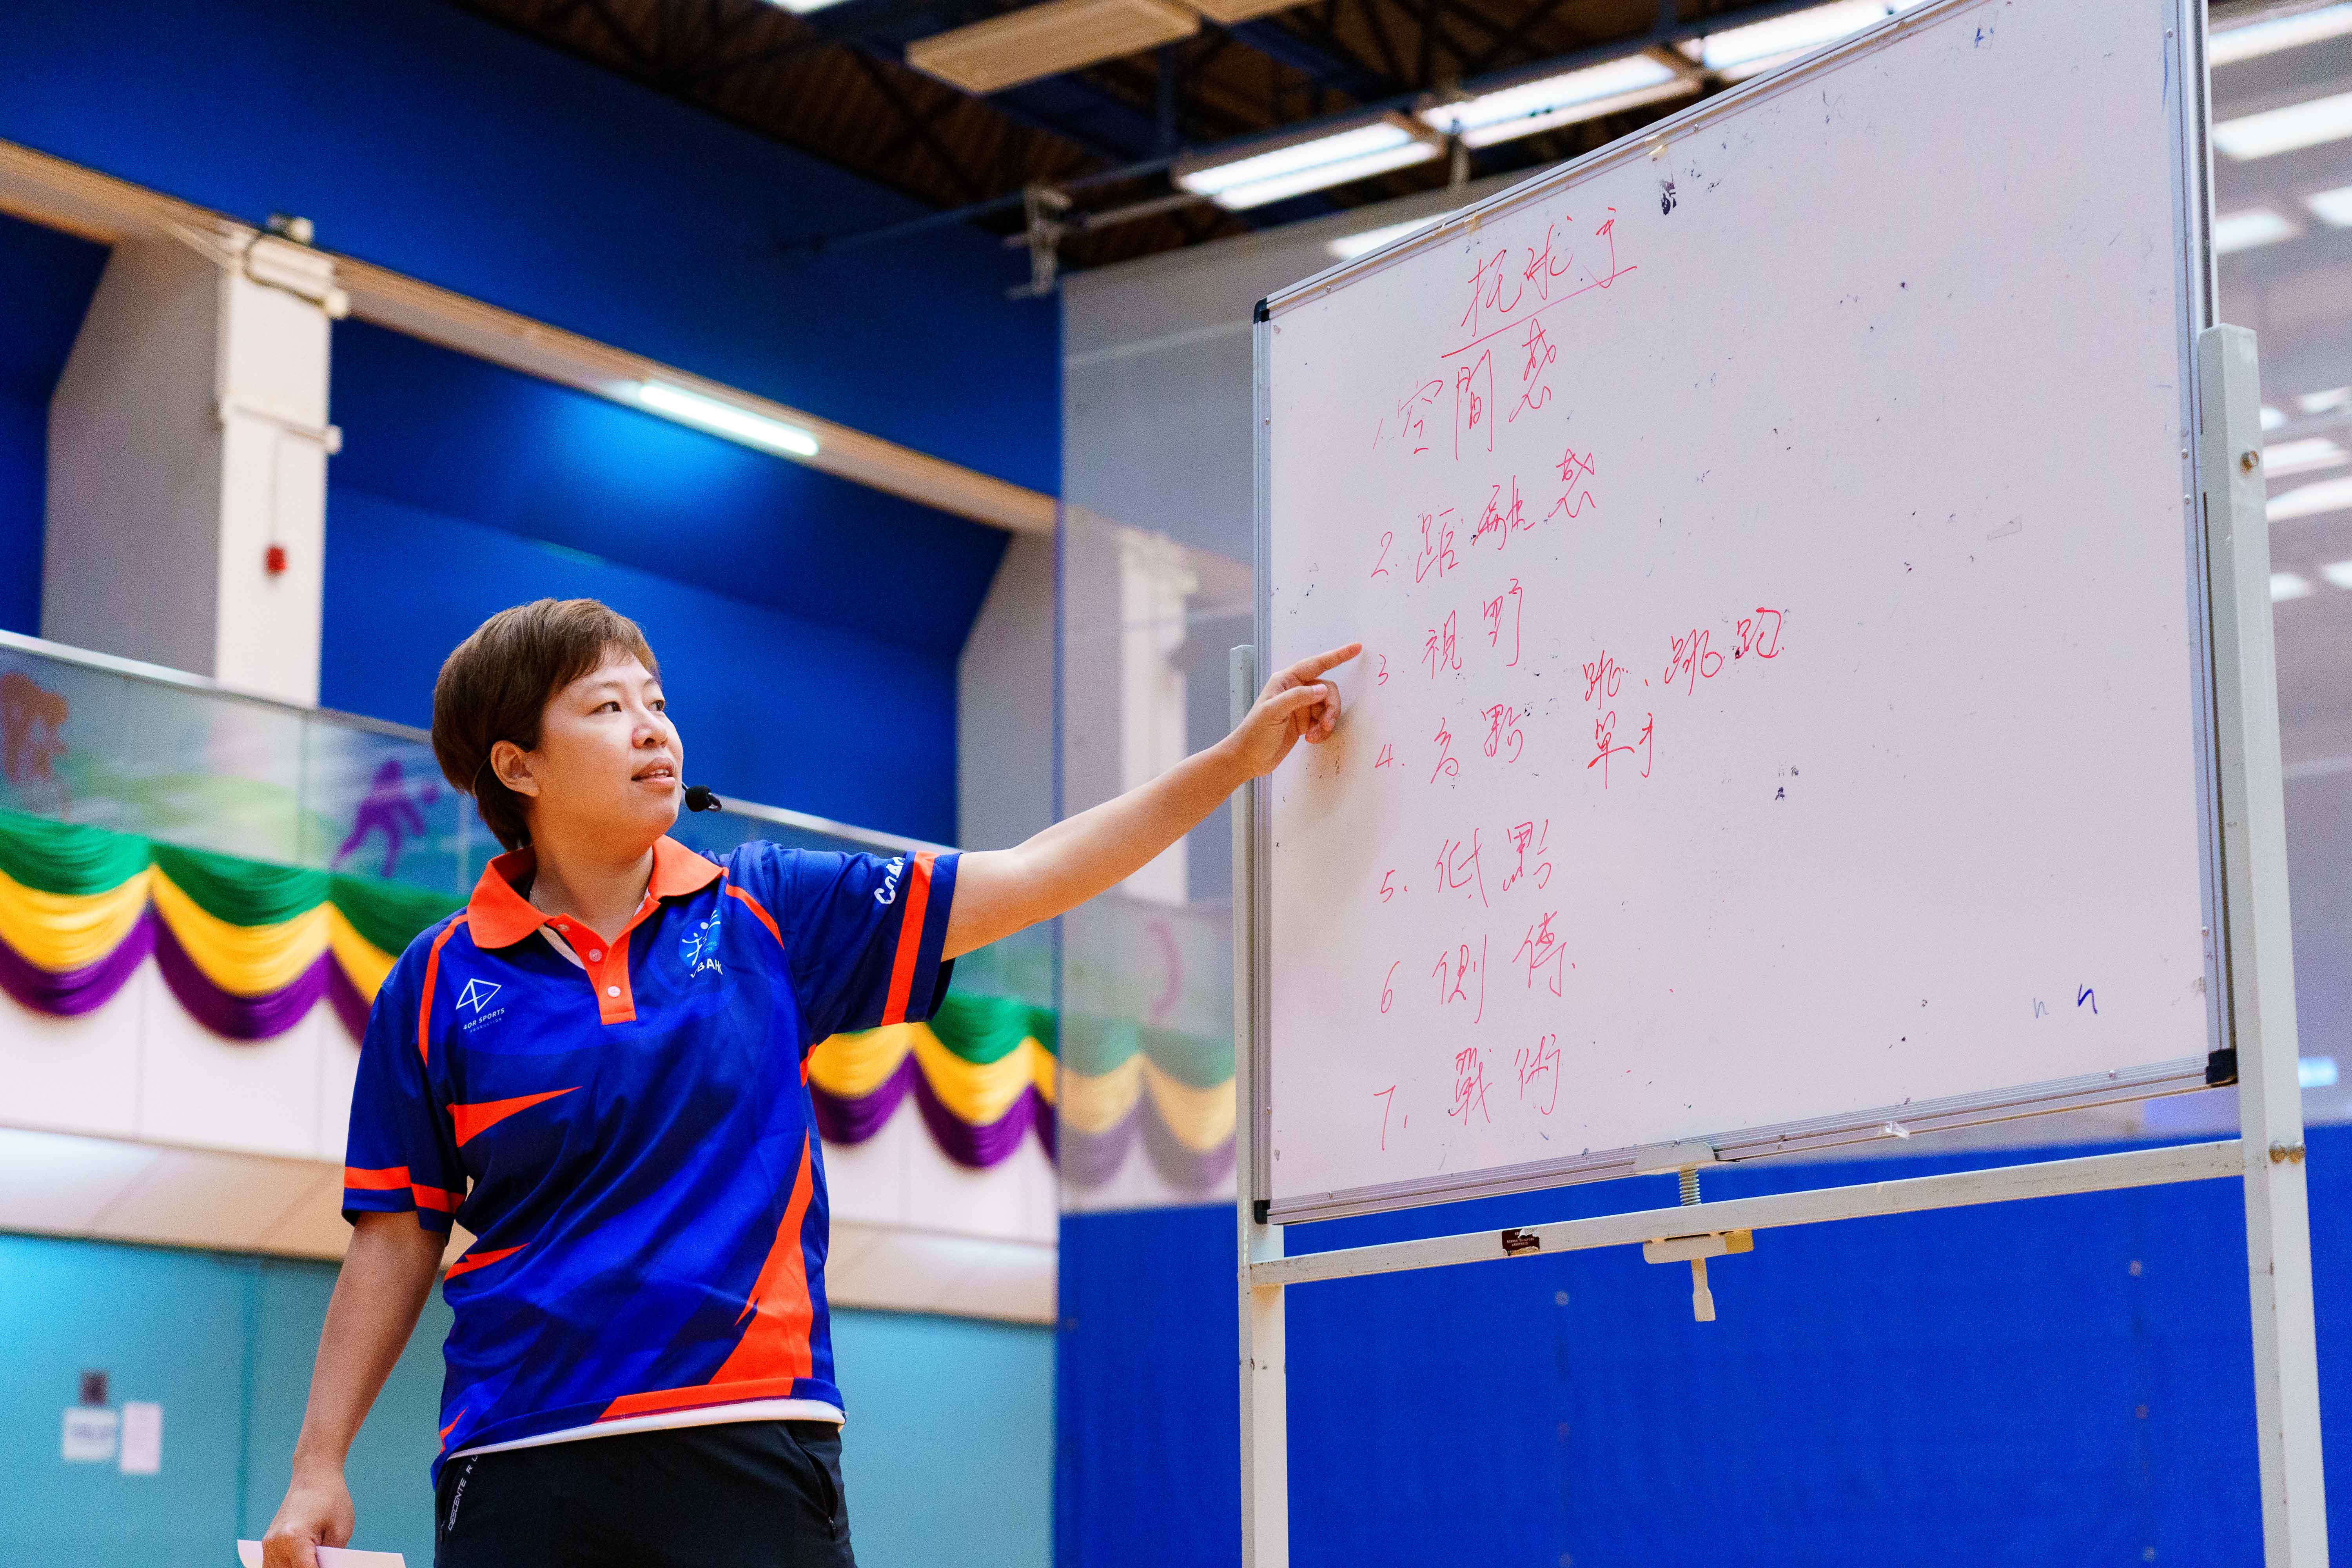 托球手
1. 空間感
2. 距離感
3. 視野
4. 高點 跳、跳跑
單手
5. 低點
6 側傳
7. 戰術
4OR SPORTS
VBAHK
DESCENTE
n n